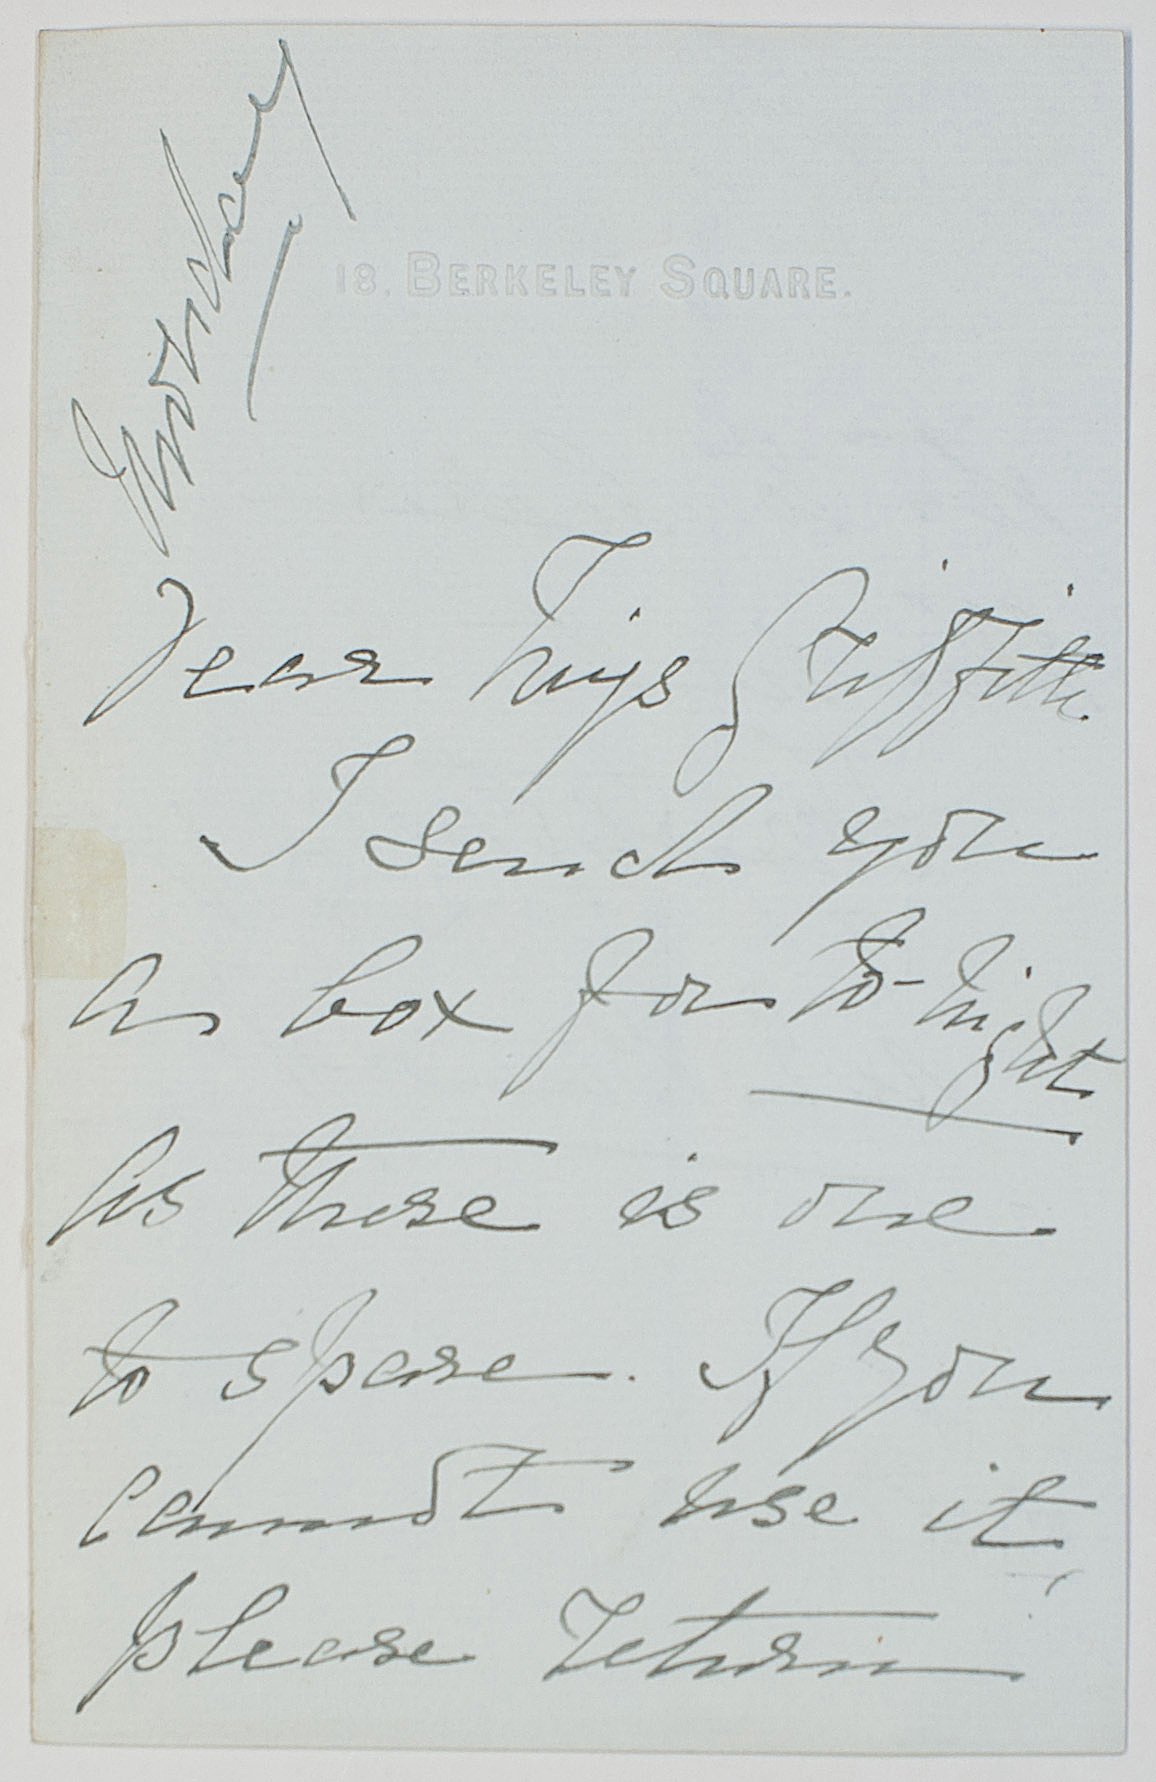 Monday
18. BERKELEY SQUARE.
Dear Miss Griffith
I send you
a box for to-night
as there is one
to spare. If you
cannot use it,
please return